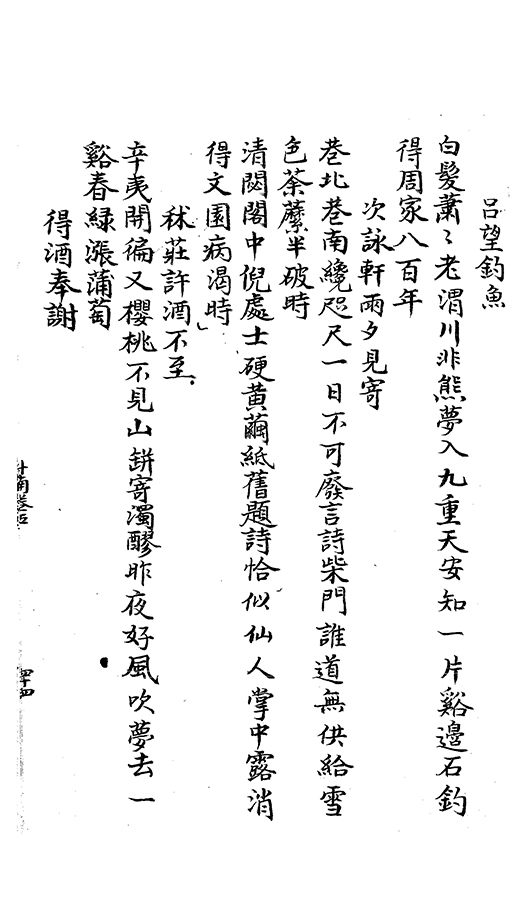 呂望釣魚
白髮蕭〻老渭川非熊夢入九重天安知一片谿邊石釣
得周家八百年
次詠軒雨夕見寄
巷北巷南纔咫尺一日不可廢言詩柴門誰道無供給雪
色荼蘼半破時
清閟閣中倪處士硬黄繭紙舊題詩恰似仙人掌中露消
得文園病渴時
秫莊許酒不至
辛夷開徧又櫻桃不見山缾寄濁醪昨夜好風吹夢去一
谿春綠漲蒲萄
得酒奉謝
四十四